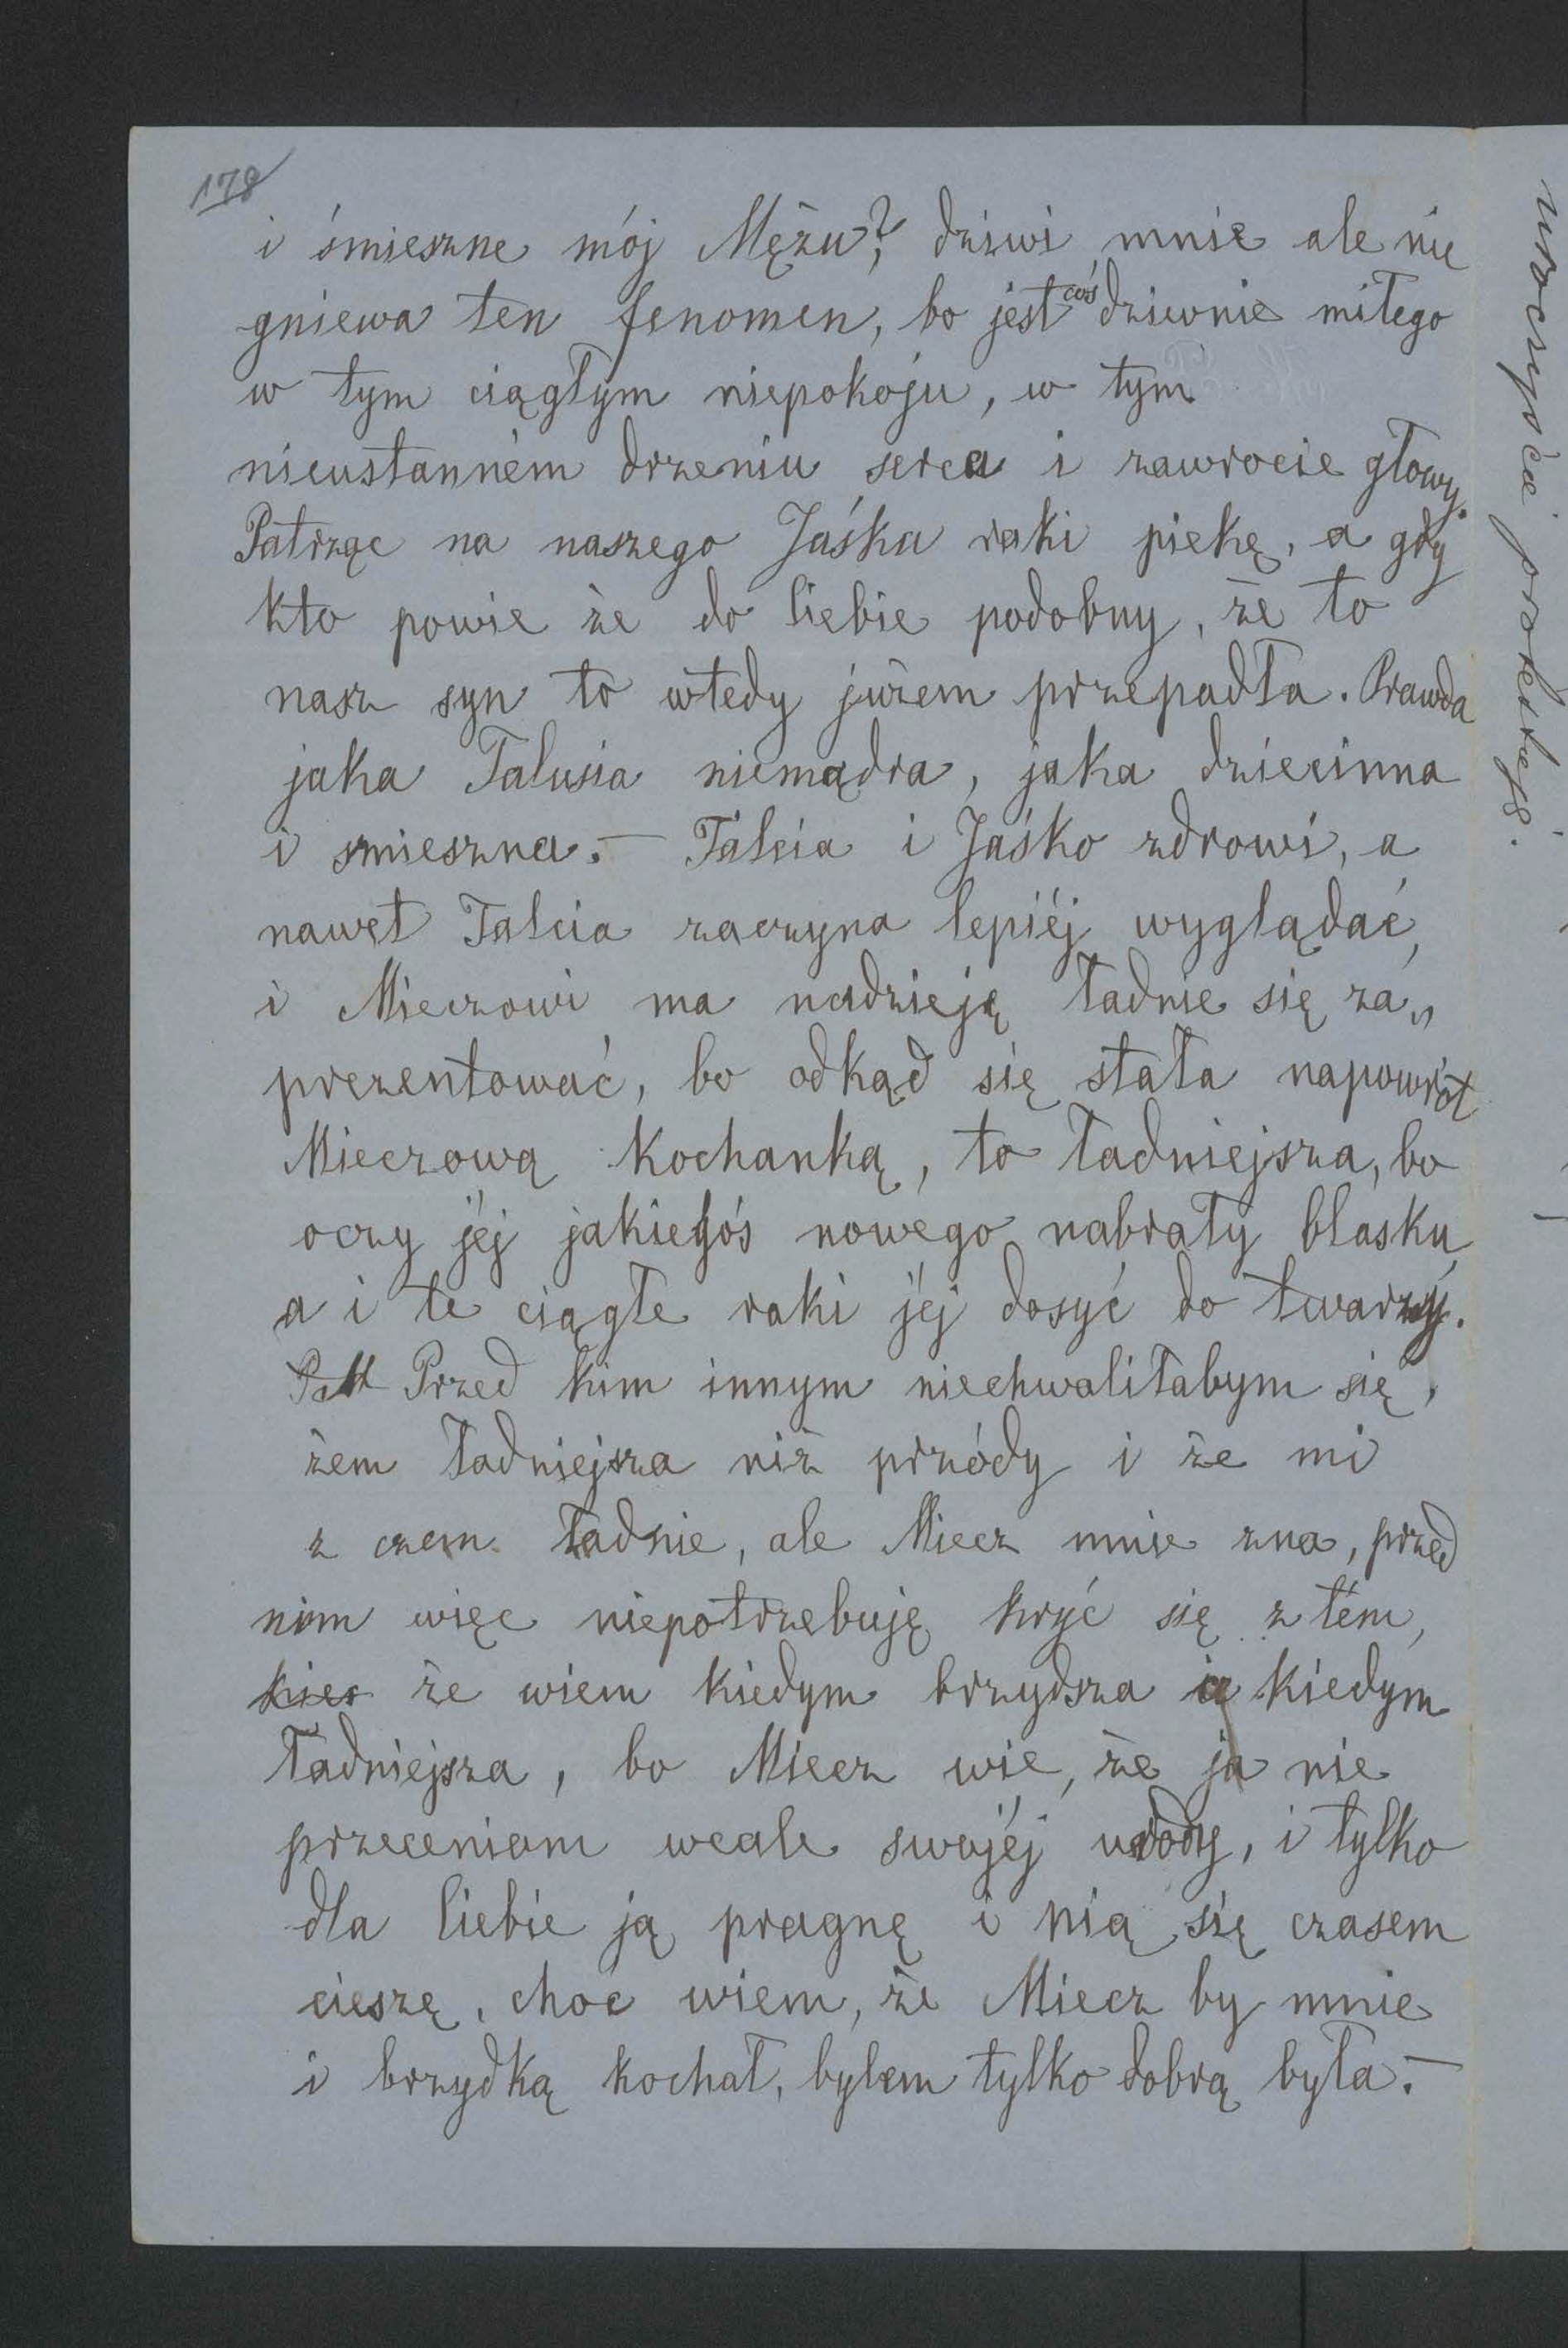 178
i śmieszne mój Mężu? dziwi mnie ale nie
gniewa ten fenomen, bo jest coś dziwnie miłego
w tym ciągłym niepokoju, w tym
nieustanném drzeniu serca i zawrocie głowy.
Patrząc na naszego Jaśka raki piekę, a gdy
kto powie że do Ciebie podobny, że to
nasz syn to wtedy jużem przepadła. Prawda
jaka Talusia niemądra, jaka dziecinna
i smieszna. — Talcia i Jaśko zdrowi, a
nawet Talcia zaczyna lepiéj wyglądać,
i Mieczowi ma nadzieję ładnie się za„
prezentować, bo odkąd się stała napowrót
Mieczową kochanką, to ładniejsza, bo
oczy jéj jakiegoś nowego nabrały blasku,
a i te ciągłe raki jéj dosyć do twarzy.
Przed kim innym niechwaliłabym się,
żem ładniejsza niż przódy i że mi
z czem ładnie, ale Miecz mnie zna, przed
nim więc niepotrzebuję kryć się z tém,
kies że wiem kiedym brzydsza a kiedym
ładniejsza, bo Miecz wie, że ja nie
przeceniam wcale swojéj urody, i tylko
dla Ciebie ją pragnę i nią się czasem
cieszę, choć wiem, że Miecz by mnie
i brzydką kochał, bylem tylko dobrą była. —